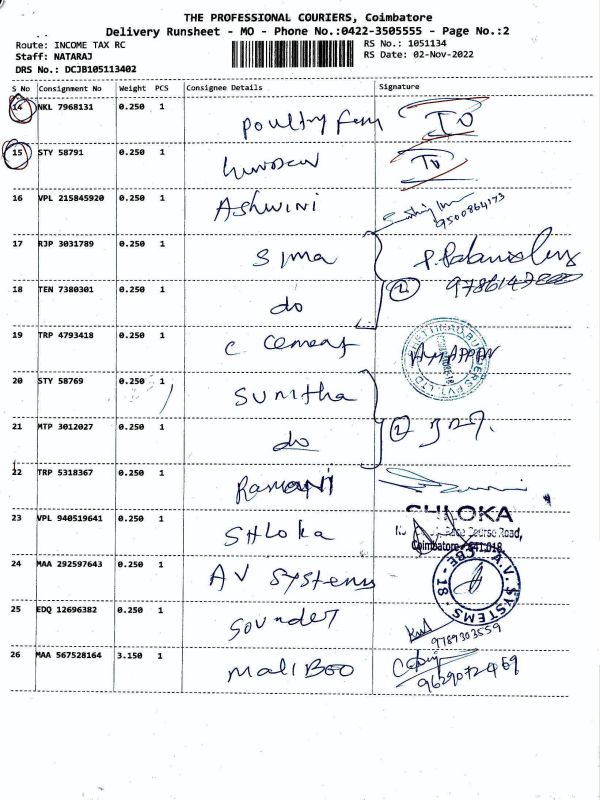 THE PROFESSIONAL COURIERS, Coimbatore
Delivery Runsheet - MO - Phone No.:0422-3505555 - Page No.:2
Route: INCOME TAX RC
RS No.: 1051134
Staff: NATARAJ
RS Date: 02-Nov-2022
DRS No.: DCJB105113402
S No Consignment No Weight PCS Consignee Details Signature
14 NKL 7968131 0.250 1 Poultry
15 STY 58791 0.250 1
16 VPL 215845920 0.250 1 Ashwini
9500864173
17 RJP 3031789 0.250 1 Sima
18 TEN 7380301 0.250 1 do
19 TRP 4793418 0.250 1 C Cement
20 STY 58769 0.250 1 Sunitha
21 MTP 3012027 0.250 1 do
22 TRP 5318367 0.250 1 Ramani
23 VPL 940519641 0.250 1 Shloka
SHLOKA
Race Course Road,
Coimbatore - 641 018.
24 MAA 292597643 0.250 1 AV Systems
A.V. SYSTEMS CBE - 18
25 EDQ 12696382 0.250 1 Sounder
9789303559
26 MAA 567528164 3.150 1 Maliboo
9629072469